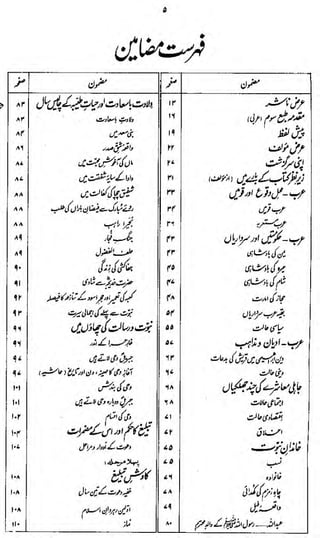 ۵
فہرست مضامین
مضمون صفحہ
عرض ناشر ۱۳
مقدمہ طبع سوم (عربی) ۱۶
پیش لفظ ۱۹
عرض مؤلف ۲۲
اپنی سرگزشت ۲۷
زیر نظر کتاب کے بارے میں (از مؤلف) ۳۱
عرب - محل وقوع اور قومیں ۳۳
عرب قومیں ۳۴
عرب مستعربہ ۳۶
عرب - حکومتیں اور سرداریاں ۴۳
یمن کی بادشاہی ۴۳
حیرہ کی بادشاہی ۴۵
شام کی بادشاہی ۴۷
حجاز کی امارت ۴۸
بقیہ عرب سرداریاں ۵۴
سیاسی حالت ۵۵
عرب - ادیان و مذاہب ۵۷
دین ابراہیمی میں قریش کی بدعات ۶۳
دینی حالت ۶۷
جاہلی معاشرے کی چند جھلکیاں ۶۸
اجتماعی حالات ۶۸
اقتصادی حالت ۷۱
اخلاق ۷۲
خاندان نبوت ۷۵
نسب ۷۵
خانوادہ ۷۶
چاہ زمزم کی کھدائی ۷۸
واقعہ فیل ۷۹
عبداللہ - رسول اللہ ﷺ کے والد محترم ۸۰
مضمون صفحہ
ولادت باسعادت اور حیات طیبہ کے چالیس سال ۸۳
ولادت باسعادت ۸۳
بنی سعد میں ۸۴
واقعہ شق صدر ۸۶
ماں کی آغوش محبت میں ۸۷
دادا کے سایہ شفقت میں ۸۷
شفیق چچا کی کفالت میں ۸۸
روئے مبارک سے فیضان باراں کی طلب ۸۸
بحیرا راہب ۸۸
جنگ فجار ۸۹
حلف الفضول ۸۹
جفاکشی کی زندگی ۹۰
حضرت خدیجہ سے شادی ۹۱
کعبہ کی تعمیر اور حجر اسود کے تنازعہ کا فیصلہ ۹۲
نبوت سے پہلے کی اجمالی سیرت ۹۴
نبوت و رسالت کی چھاؤں میں ۹۶
غار حرا کے اندر ۹۶
جبریل وحی لاتے ہیں ۹۷
آغاز وحی کا مہینہ، دن اور تاریخ (حاشیہ) ۹۷
وحی کی بندش ۱۰۱
جبریل دوبارہ وحی لاتے ہیں ۱۰۱
وحی کی اقسام ۱۰۲
تبلیغ کا حکم اور اس کے مضمرات ۱۰۴
دعوت کے ادوار و مراحل ۱۰۷
پہلا مرحلہ:
کاوش تبلیغ ۱۰۸
خفیہ دعوت کے تین سال ۱۰۸
اولین رہروان اسلام ۱۰۸
نماز ۱۱۰